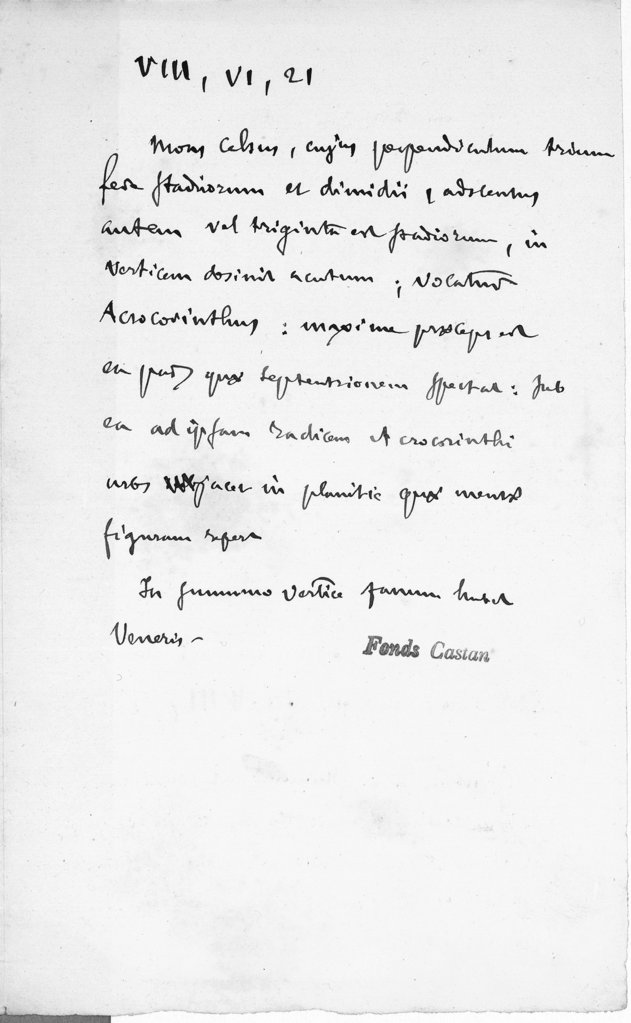 VIII, VI, 21
Mons celsus, cujus perpendiculum trium
fere stadiorum et dimidii, adscensus
autem vel triginta est stadiorum, in
verticem desinit acutum ; vocatur
Acrocorinthus : maxime præceps est
ea pars quæ septentrionem spectat : sub
ea ad ipsam radicem Acrocorinthi
urbs jacet in planitie quæ mensæ
figuram refert
In summo vertice fanum habet
Veneris -
Fonds Castan